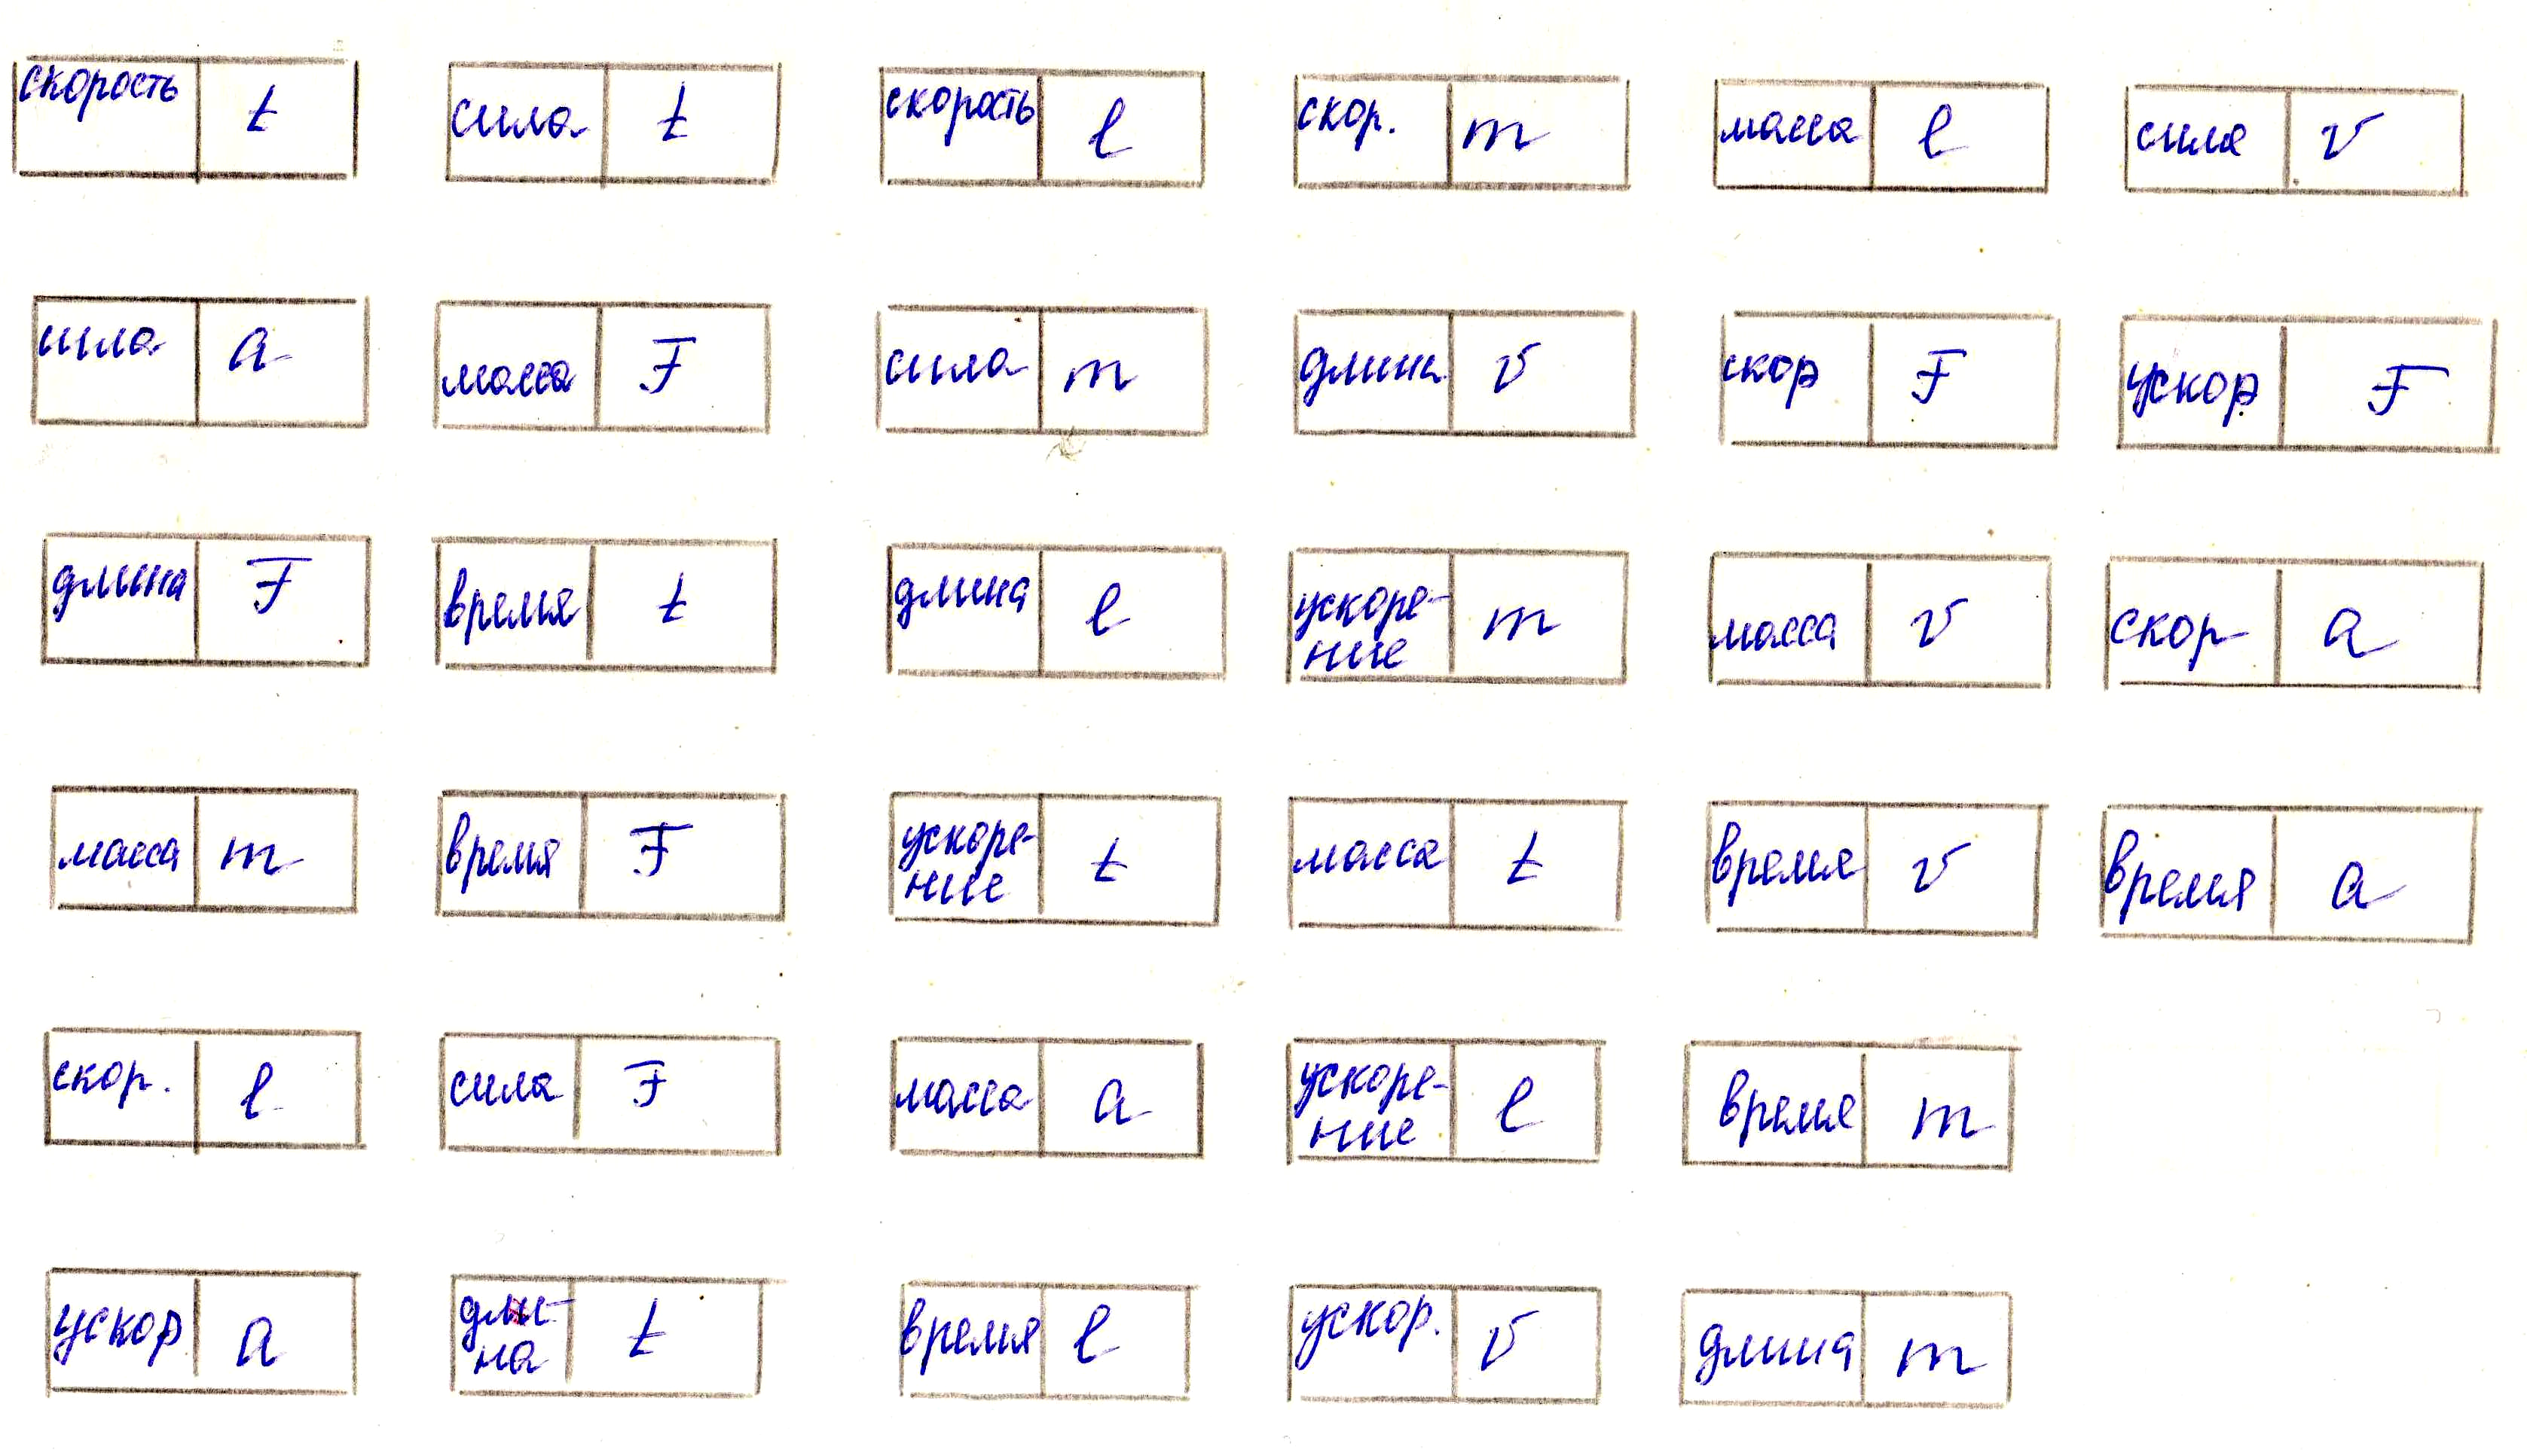 скорость t сила t скорость l скор. m масса l сила v
сила a масса F сила m длина v скор F ускор F
длина F время t длина l ускоре- m масса v скор a
ние
масса m время F ускоре- t масса t время v время a
ние
скор. l сила F масса a ускоре- l время m
ние
ускор a дли- t время l ускор. v длина m
на